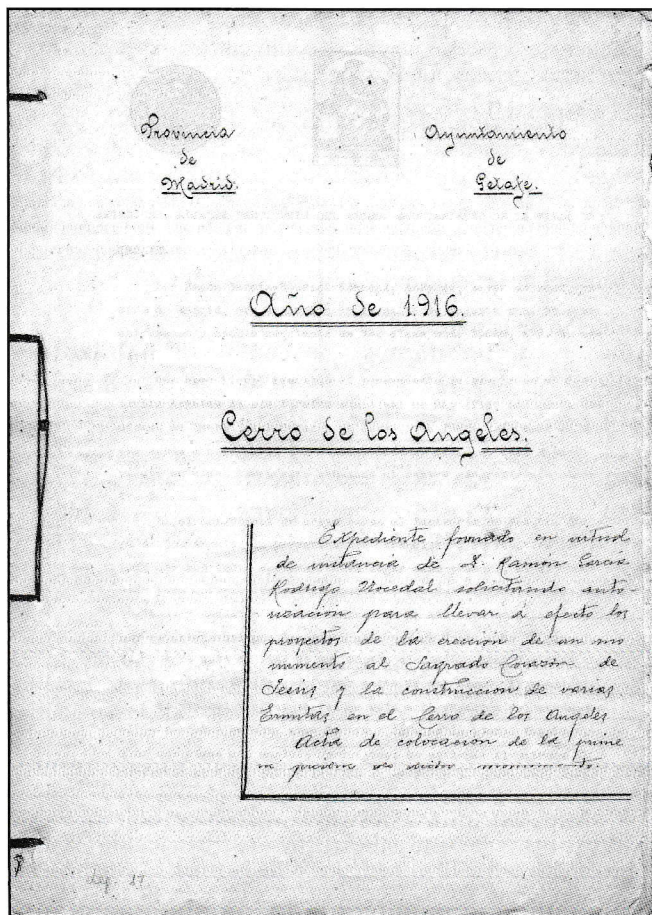 Provincia
de
Madrid.
Ayuntamiento
de
Getafe.
Año de 1.916.
Cerro de los Angeles.
Expediente formado en virtud
de instancia de D. Ramón García
Rodrigo Nocedal solicitando auto-
rización para llevar á efecto los
proyectos de la erección de un mo
numento al Sagrado Corazón de
Jesús y la construccion de varias
Ermitas en el Cerro de los Angeles
Acta de colocación de la prime
ra piedra de dicho monumento.
Leg. 17